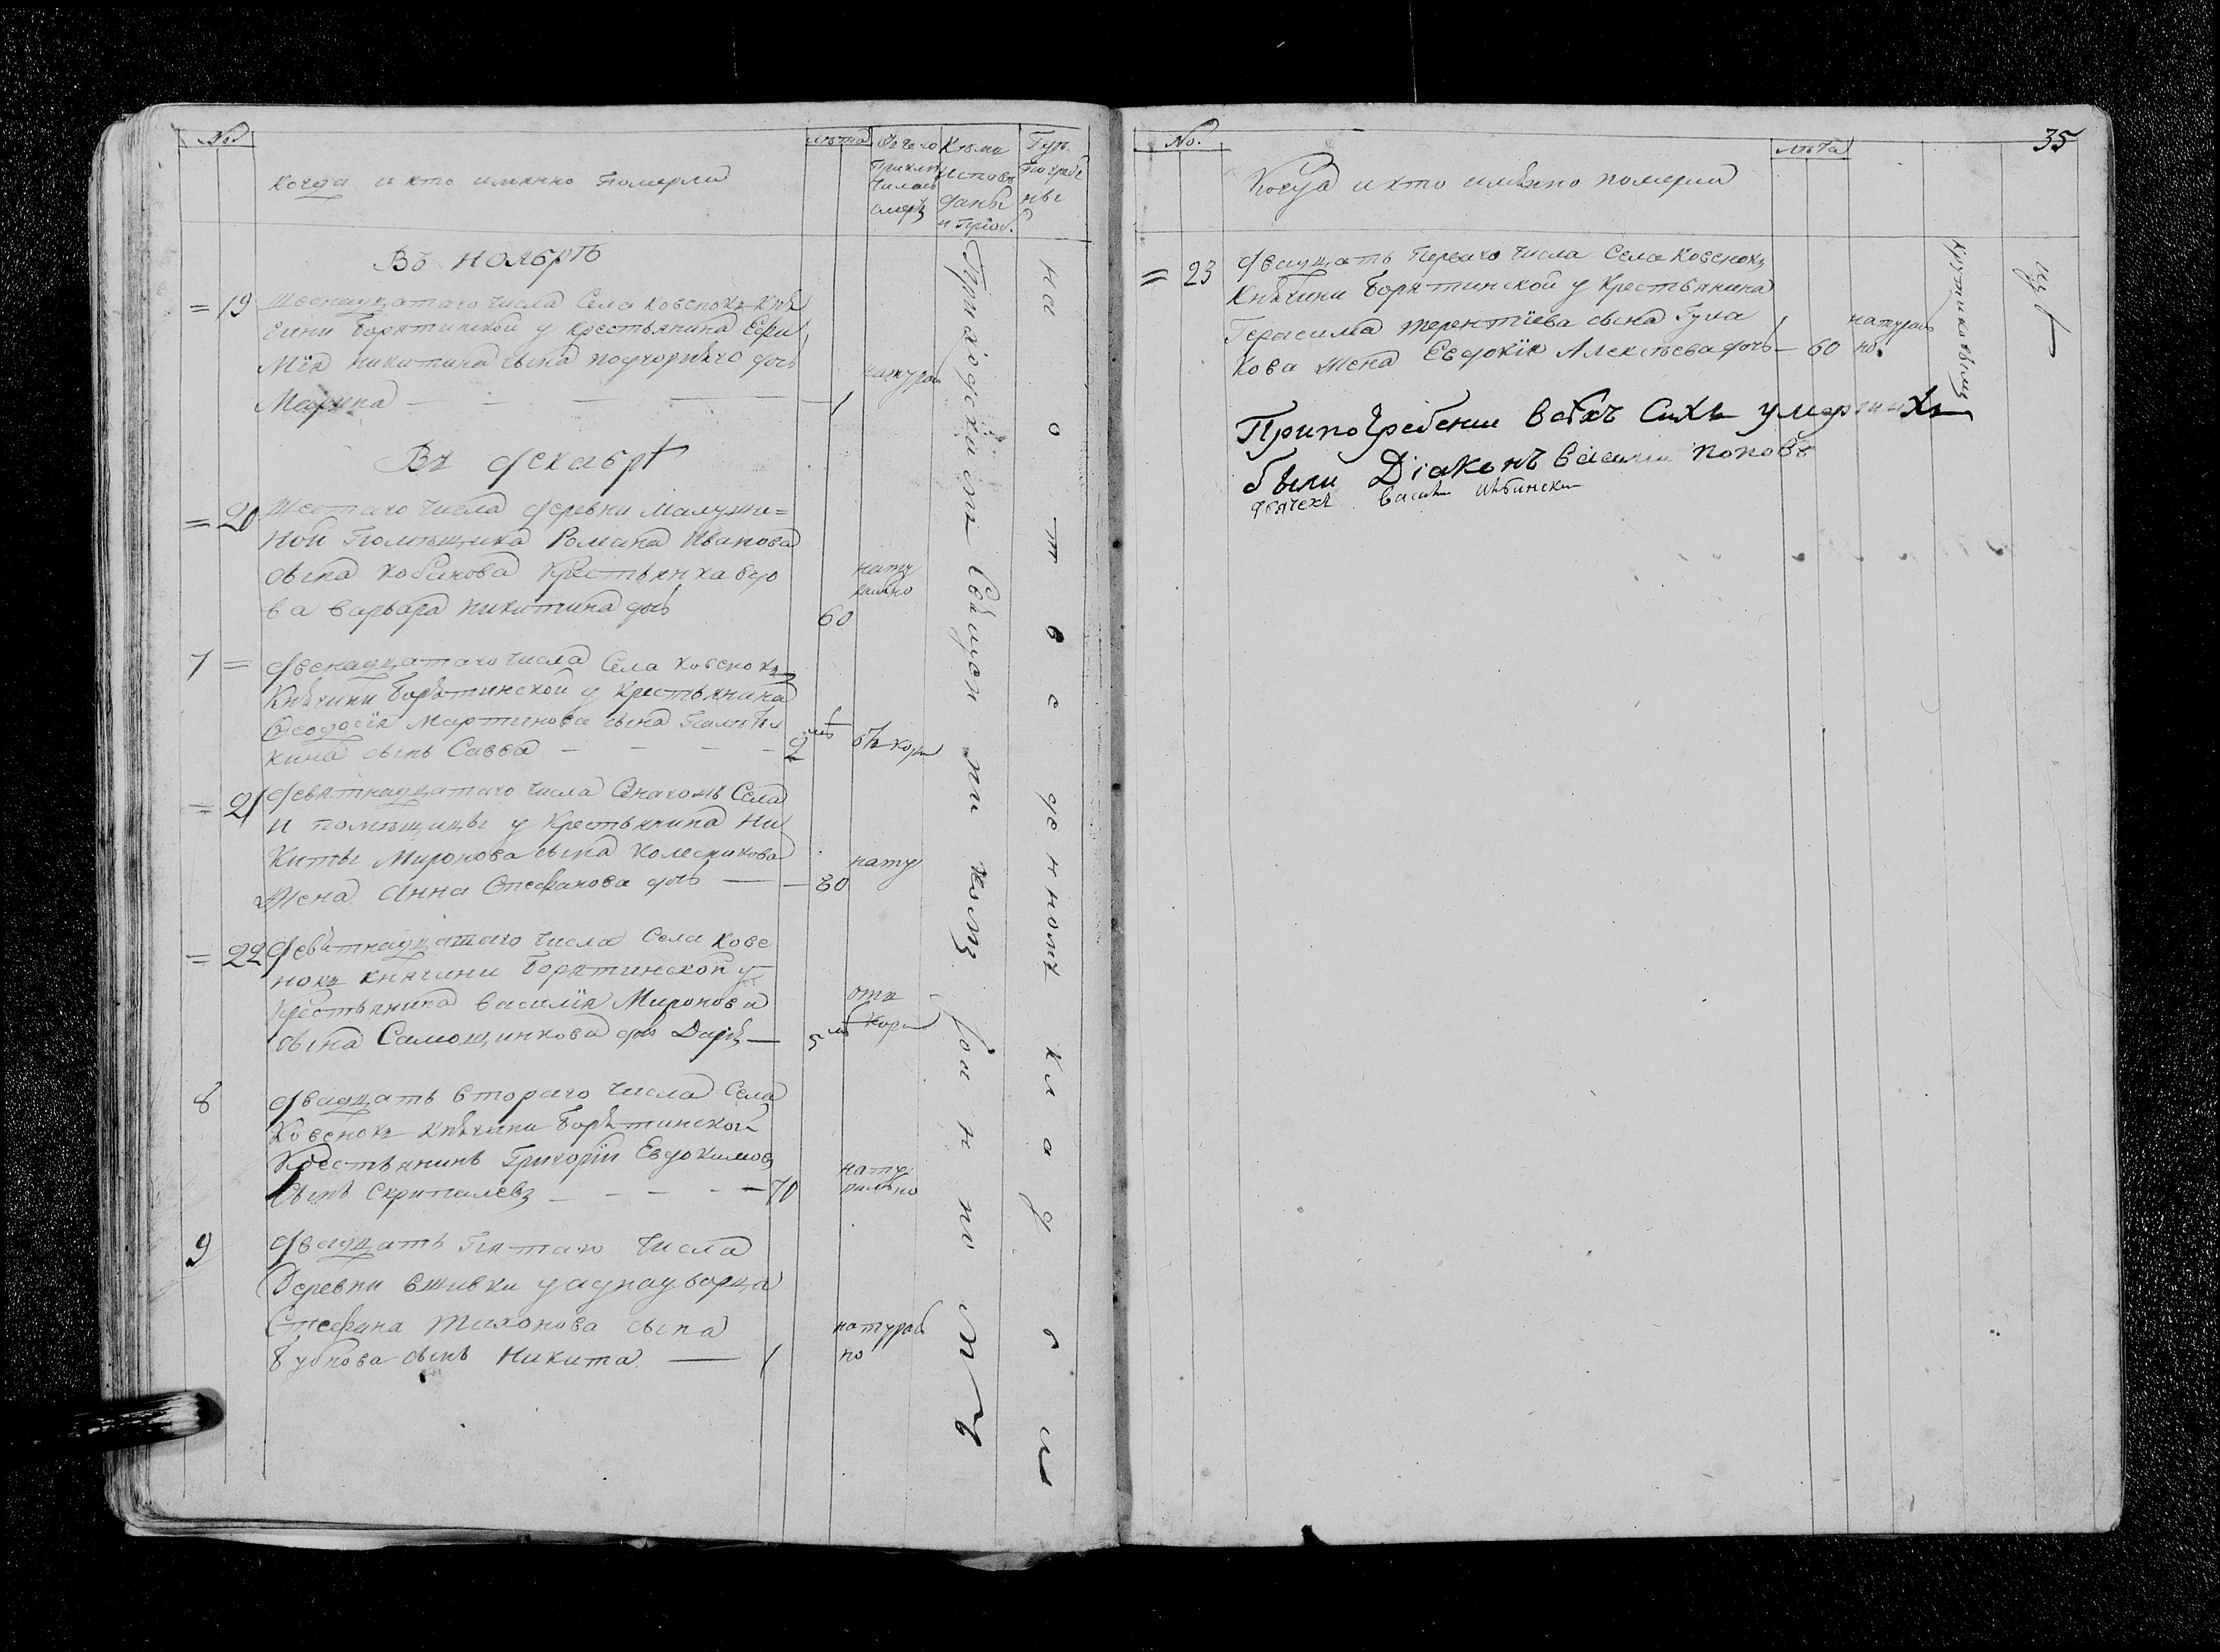 №
когда и кто имянно померли
лѣта
Отъ чего приключилась смерть
Кѣмъ исповѣданы и приоб.
Гдѣ погребены
Въ ноябрѣ
= 19 шеснадцатаго числа Села ковенокъ Кня
гини борятинской у крестьянина Ефи
мїя никитина сына подгорняго дочь
Марина — — — — 1 натураль
Въ декабрѣ
= 20 Шестаго числа деревни малуши=
ной помѣщика Романа Иванова
сына кобанова крестьянка вдо
ва варвара никитина дочь 60 натурально
7 = двенадцатаго числа Села ковенокъ
Княгини борятинской у крестьянина
Феодосїя Мартинова сына
кина сынъ Савва — — — — 2 лѣ отъ кори
= 21 девятнадцатаго числа Онагожъ Села
и помѣщицы у крестьянина Ни
киты Миронова сына колесникова
жена Анна Стефанова дочь — 30 нату
= 22 девятнадцатаго числа Села кове
нокъ княгини борятинской у
крестьянина василїя Миронова
сына Самощинкова дочь Дарья — 5 лѣ отъ кори
8 двадцать втораго числа Села
Ковенокъ княгини борятинской
Крестьянинъ Григорїй Евдокимовъ
Сынъ скрипалевъ — — — — 70 натурально
9 двадцать пятаго числа
Деревни вшивки у аднадворца
Стефана тихонова сына
бубнова сынъ никита — 1 натурально
приходскимъ Священникомъ Іоанномъ
на отведенномъ кладби
№.
35
лѣта
Когда и кто имянно померли
= 23 двадцать перваго числа Села ковенокъ
Княгини борятинской у крестьянина
Герасима терентїева сына Гула
кова жена Евдокїя Алексѣева дочь — 60 натурально
крутиковымъ
щѣ
При погребении всѣхъ сихъ умершихъ
были Дїаконъ василий поповъ
дьячекъ василий